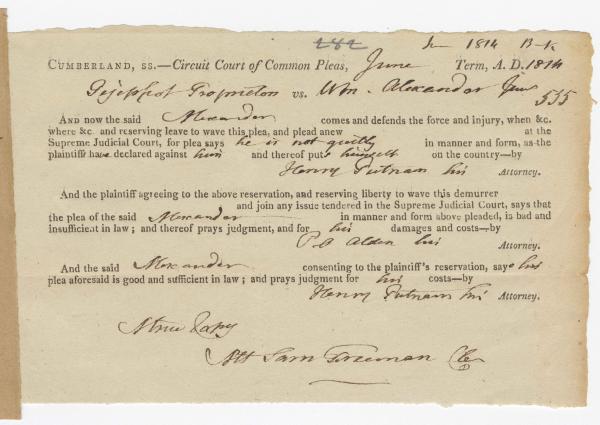 282 1814
CUMBERLAND, SS.—Circuit Court of Common Pleas, June Term, A. D. 1814
Pejepscot Proprietors vs. Wm. Alexander Junr
535
AND now the said Alexander comes and defends the force and injury, when &c.
where &c. and reserving leave to wave this plea, and plead anew at the
Supreme Judicial Court, for plea says he is not guilty in manner and form, as the
plaintiffs have declared against him and thereof puts himself on the country—by
Henry Putnam his Attorney.
And the plaintiff agreeing to the above reservation, and reserving liberty to wave this demurrer
and join any issue tendered in the Supreme Judicial Court, says that
the plea of the said Alexander in manner and form above pleaded, is bad and
insufficient in law; and thereof prays judgment, and for his damages and costs—by
P O Alden his Attorney.
And the said Alexander consenting to the plaintiff's reservation, says his
plea aforesaid is good and sufficient in law; and prays judgment for his costs—by
Henry Putnam his Attorney.
A true Copy
Att Sam Freeman Cler